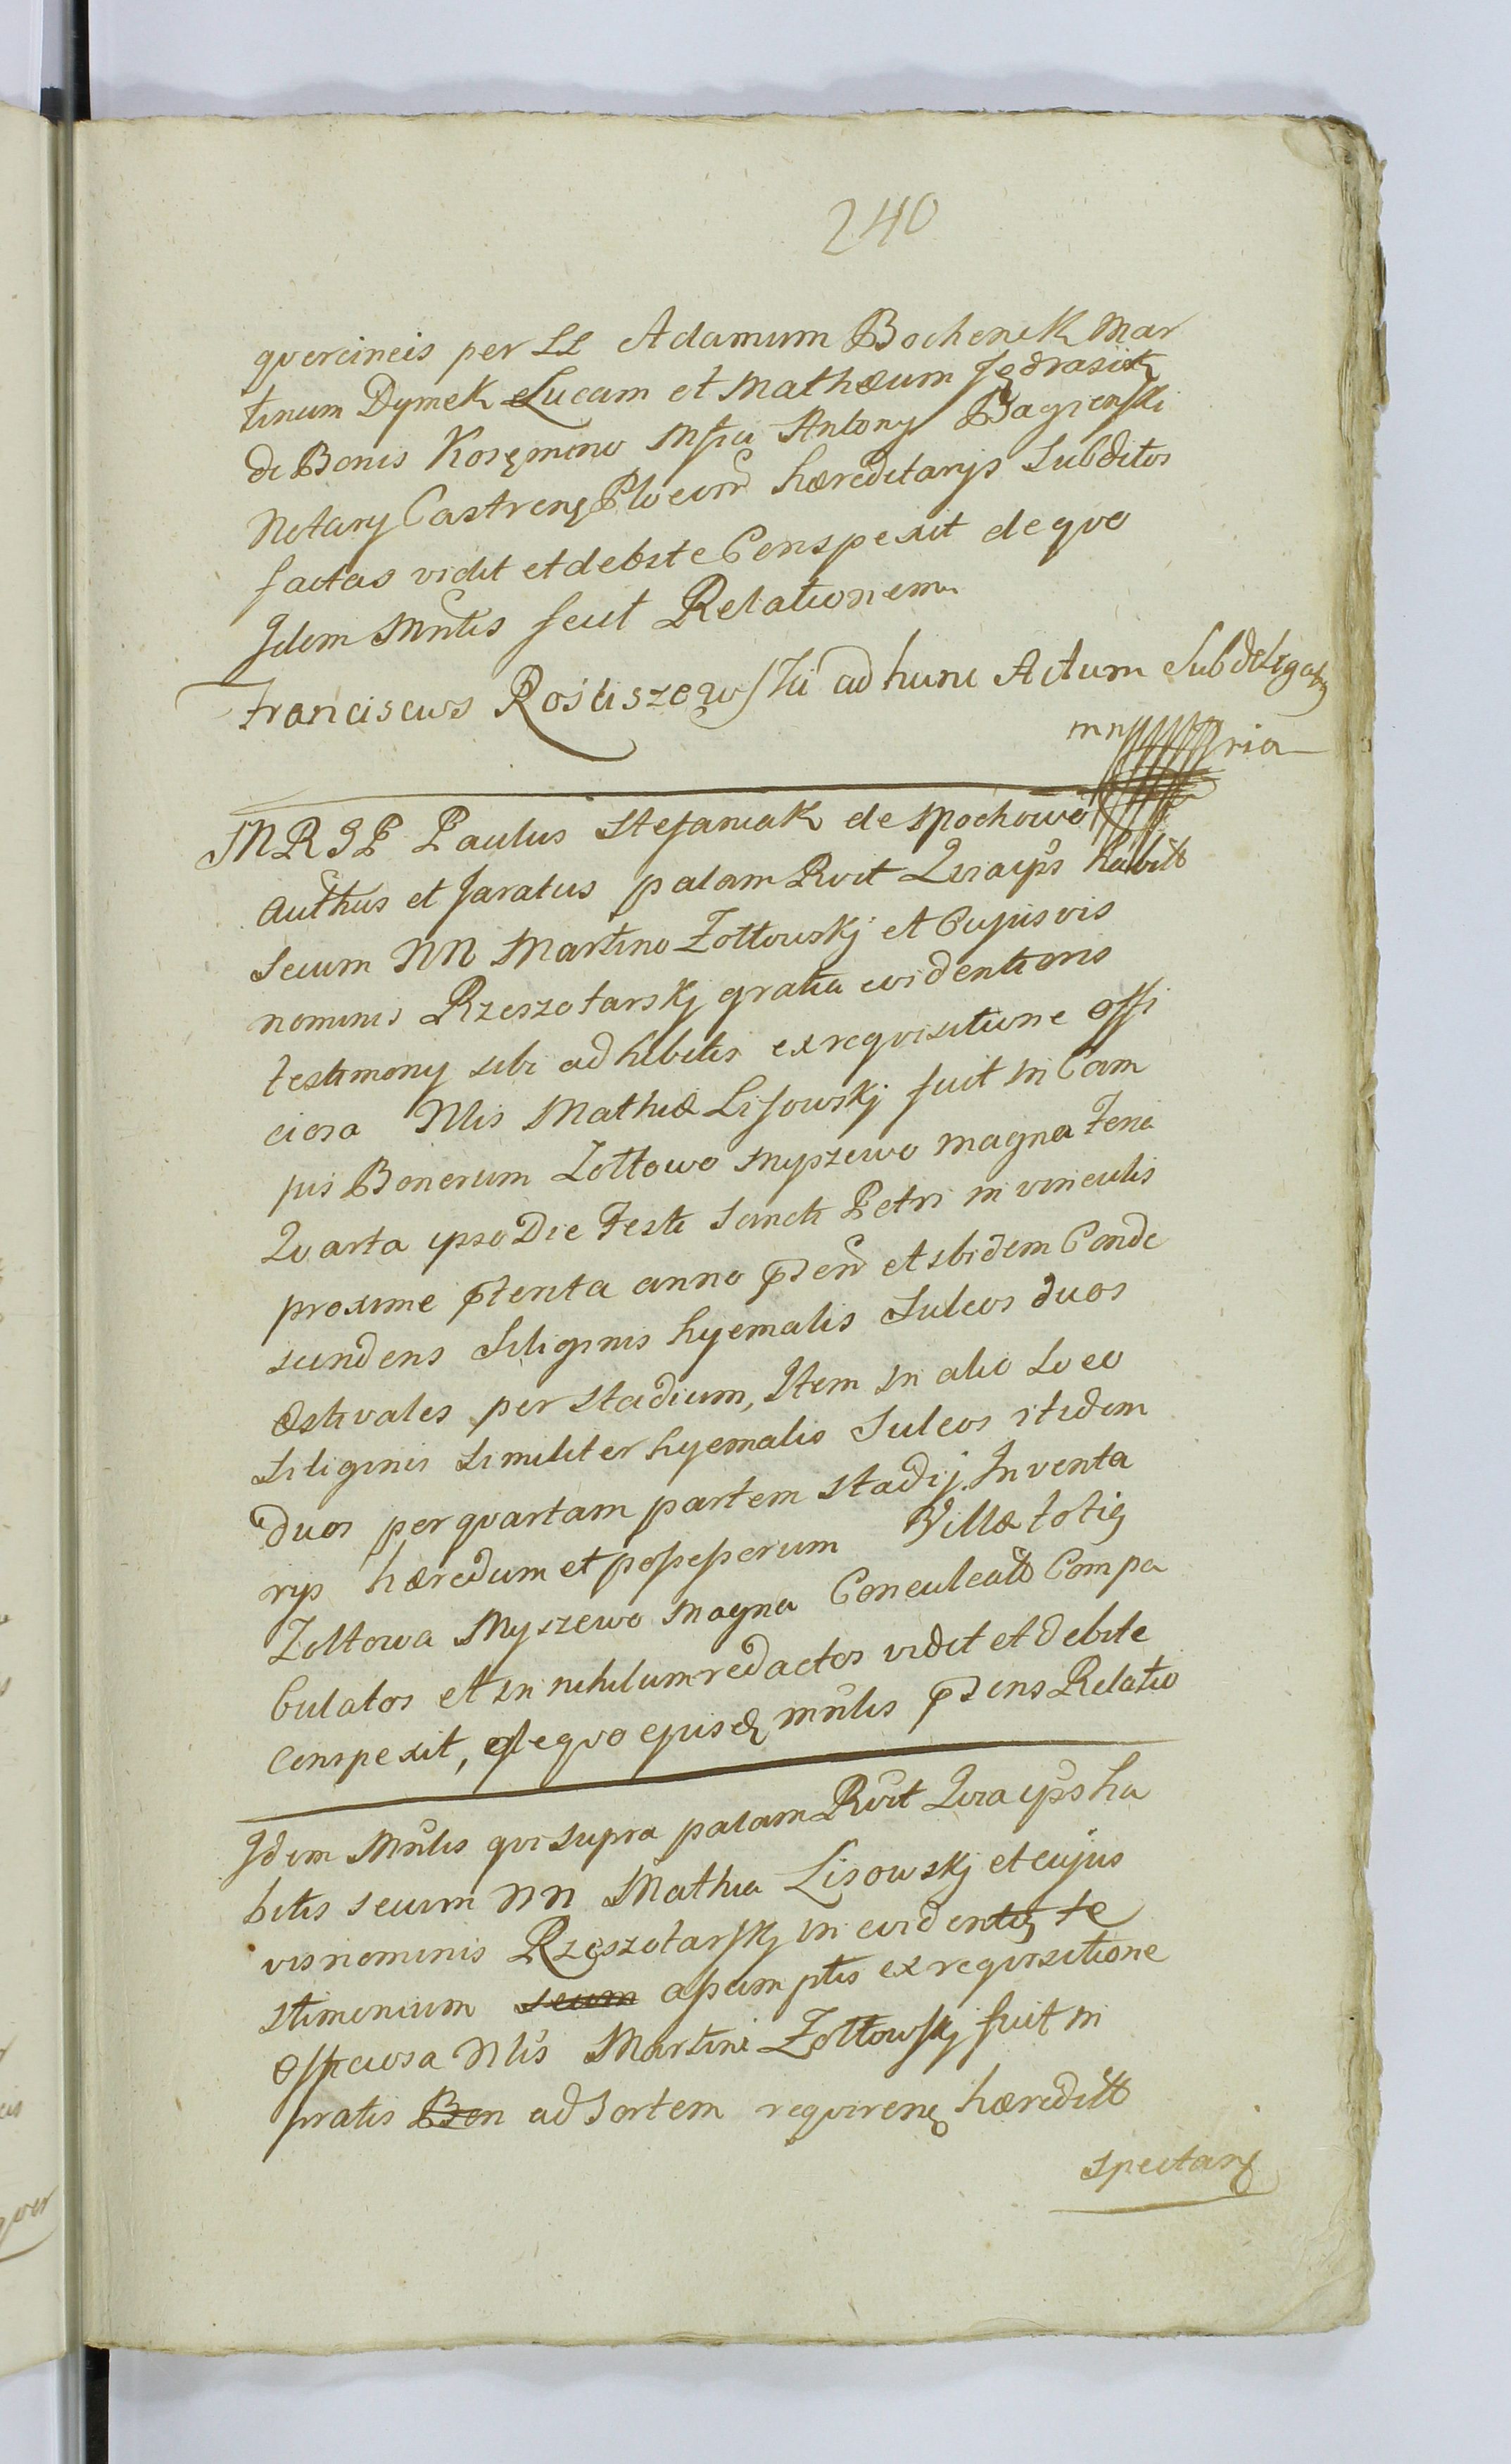 240
qvercineis per LL Adamum Bochenek Mar
tinum Dymek Lucam et Mathæum Jędrasik
de Bonis Kosęmino Mfici Antony Bagienski
Notary Castrenę Plocen hæreditarys Subditos
factas vidit et debite Conspexit de qvo
Idem Mntis fecit Relationem
Franciscus Rościszewski ad hunc Actum Subdelegatus
mnppria
M R S P Paulus Stefaniak de Mochowo
Authus et Juratus palam Rvit Qvia ips habitt
secum NN Martino Zołtowskj et Cujusvis
nominis Rzeszotarskj gratia evidentioris
testimony sibi adhibitis ex reqvisitione offi
ciosa Nlis Mathiæ Lisowskj fuit in Cam
pis Bonorum Zołtowo Myszewo magna Feria
Qvarta ipso Die Festi Sancti Petri in vinculis
proxime pterita anno pten et ibidem Conde
scendens Siliginis hyemalis Sulcos duos
æstivales per stadium, Item in alio Loco
Siliginis Similiter hyemalis Sulcos itidem
duos per qvartam partem stadij Inventa
rijs hæredum et possessorum Villæ totię
Zoltowa Myszewo Magna Conculcatt Compa
bulatos et in nihilum redactos vidit et debite
conspexit, de qvo ejusd mntis ptens Relatio
Idem Mntis qvi supra palam Rvit Qvia ips ha
bitis secum NN Mathia Lisowskj et cujus
vis nominis Rzęszotarskj in evidentię te
stimonium secum assumptis ex reqvisitione
officiosa Nlis Martini Zołtowskj fuit in
pratis Bon ad Sortem reqvirenę hæreditt
spectanę